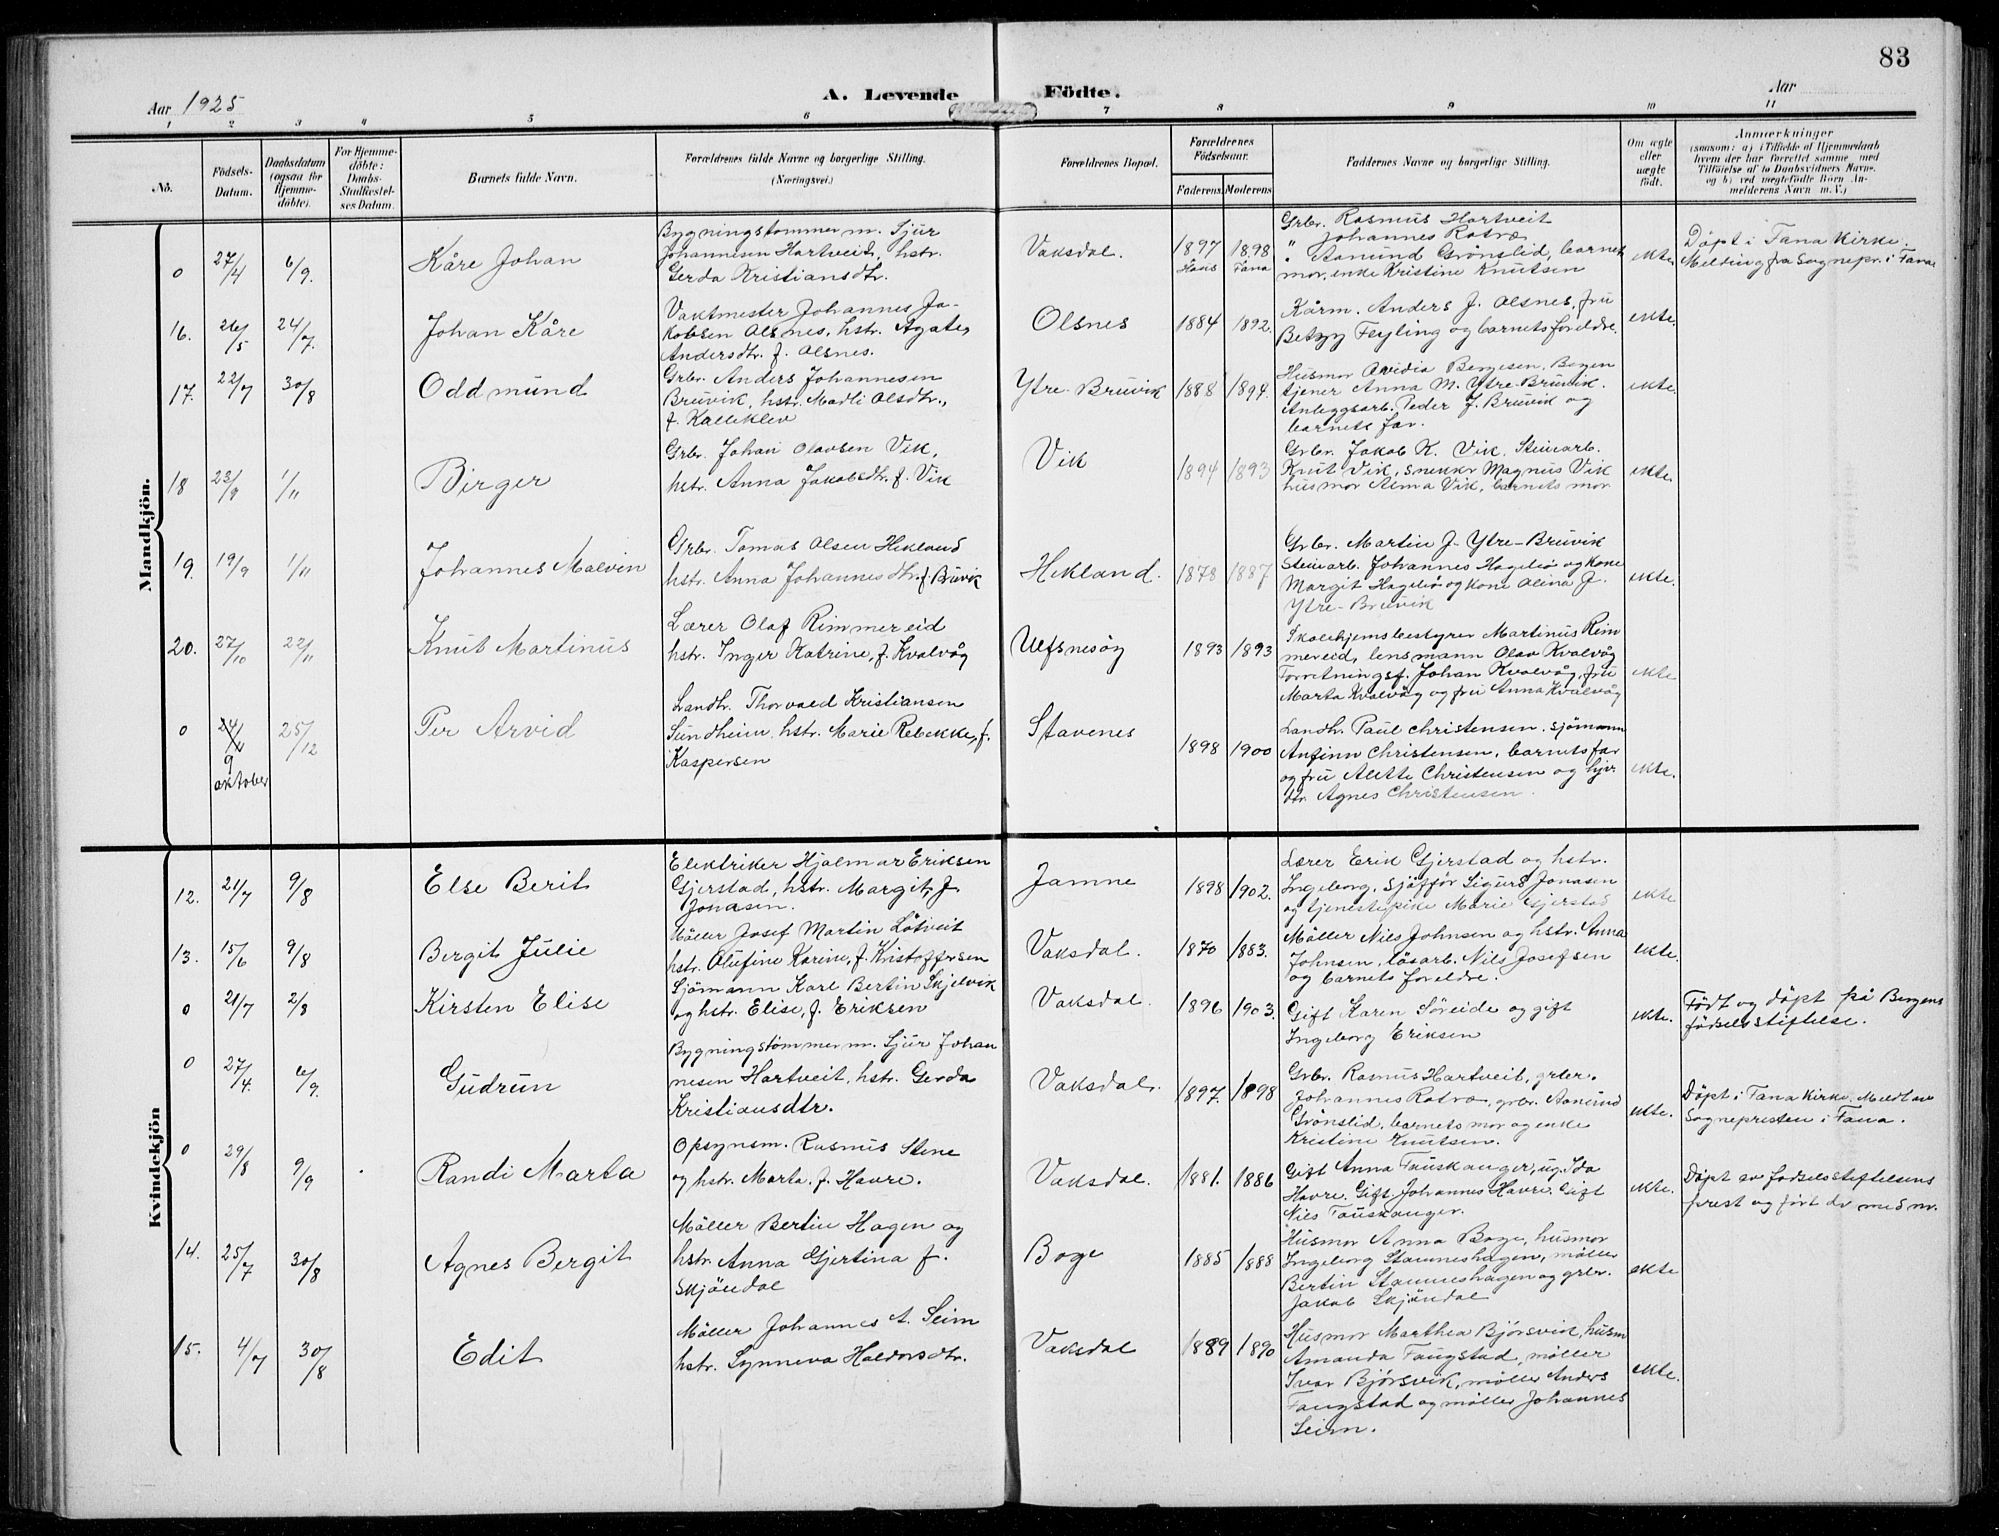 83
Aar 1925
A. Levende Födte.
Aar
1 2 3 4 5 6 7 8 9 10 11
No.
Födsels-
Datum.
Daabsdatum
(ogsaa for
Hjemme-
döbte).
For Hjemme-
döbte:
Daabs-
Stadfæstel-
ses Datum.
Barnets fulde Navn.
Forældrenes fulde Navne og borgerlige Stilling.
(Næringsvei.)
Forældrenes Bopæl.
Forældrenes
Födselsaar.
Faderens. Moderens
Faddernes Navne og borgerlige Stilling.
Om ægte
eller
uægte
födt.
Anmærkninger
(saasom: a) i Tilfælde af Hjemmedaab
hvem der har forrettet samme med
Tilföielse af to Daabsvidners Navne.
og b) ved uægtefödte Börn An-
melderens Navn m. V.)
Mandkjön.
0 27/4 6/9. Kåre Johan
Bygningstömmerm. Sjur
Johannesen Hartveit, hstr.
Gerda Kristiansdtr.
Vaksdal. 1897 1898
Haus Fana
Grbr. Rasmus Hartveit
" Johannes Rotvæ
" Aamund Grönslid, barnets
mor, enke Kristine Knutsen
ekte.
Döpt i Fana Kirke.
Melding fra Sognepr. i Fana
16. 26/5 24/7. Johan Kåre
Vaktmester Johannes Ja-
kobsen Olsnes, hstr. Agate,
Andersdtr. f. Olsnes.
Olsnes 1884 1892.
Kårm. Anders J. Olsnes, fru
Betzy Fejling og barnets foreldre.
ekte.
17. 22/7 30/8 Oddmund
Grbr. Anders Johannesen
Bruvik, hstr. Madli Olsdtr.,
f. Kalleklev
Ytre-Bruvik 1888 1894.
Husmor Ovidia Bergesen, Bergen
tjener Anna M. Ytre-Bruvik.
Anleggsarb. Peder J. Bruvik og
barnets far.
ekte.
18 23/9 1/11 Birger
Grbr. Johan Olavsen Vik,
hstr. Anna Jakobsdtr. f. Vik
Vik 1894 1893
Grbr. Jakob K. Vik. Steinarb.
Knut Vik, snekkr Magnus Vik
husmor Alma Vik, barnets mor
ekte.
19. 19/9 1/11 Johannes Malvin
Grbr. Tomas Olsen Hekland
hstr. Anna Johannesdtr. f. Bruvik
Hekland. 1878 1887
Grbr. Martin J. Ytre-Bruvik
Steinarb. Johannes Hagelsø og kone
Margit Hagelsø og kone Olina J.
Ytre-Bruvik
ekte.
20. 27/10 22/11 Knut Martinus
Lærer Olaf Rimmereid
hstr. Inger Katrine, f. Kvalvåg
Ulfsnesöy 1893 1893
Skolehjemsbestyrer Martinus Rim
mereid, lensmann Olav Kvalvåg
Forretningsf. Johan Kvalvåg, fru
Marta Kvalvåg og fru Anna Kvalvåg
ekte.
0 25/12 Per Arvid
9
oktober
Landh. Thorvald Kristiansen
Sundheim, hstr. Marie Rebekke, f.
Kaspersen
Stavenes 1898 1900
Landh. Paul Christensen. sjömann
Anfinn Christensen, barnets far
og fru Alette Christensen og hjv.
dtr. Agnes Christensen.
ekte.
Kvindekjön
12. 21/7 9/8 Else Berit
Elektriker Hjalmar Eriksen
Gjerstad, hstr. Margit, f.
Jonasen.
Jamne 1898 1902.
Lærer Erik Gjerstad og hstr.
Ingeborg, sjåfför Sigurd Jonasen
og tjenestepike Marie Gjerstad
ekte
13. 15/6 9/8 Bergit Julie
Möller Josef Martin Lötveit
hstr. Olufine Karine, f. Kristoffersen
Vaksdal. 1870 1883.
Möller Nils Johnsen og hstr. Anna
Johnsen, lösarb. Nils Josefsen
og barnets foreldre.
ekte.
0 21/7 2/8 Kirsten Elise
Sjömann Karl Bertin Skjelvik
og hstr. Elise, f. Eriksen
Vaksdal. 1896 1903.
Gift Karen Söreide og gift
Ingeborg Eriksen
ekte.
Födt og döpt på Bergens
födselsstiftelse.
0 27/4. 6/9. Gudrun
Bygningstömmerm. Sjur Johan
nesen Hartveit, hstr. Gerda
Kristiansdtr.
Vaksdal. 1897. 1898
Grbr. Rasmus Hartveit, grbr.
Johannes Rotvæ, grbr. Aamund
Grönslid, barnets mor og enke
Kristine Knutsen.
ekte.
Döpt i Fana Kirke. Meldt av
Sognepresten i Fana.
0 29/8 9/9 Randi Marta
Opsynsm. Rasmus Stene
og hstr. Marta, f. Havre.
Vaksdal. 1881. 1886
Gift Anna Fauskanger, ug. Ida
Havre. Gift Johannes Havre. Gift
Nils Fauskanger.
ekte.
Döpt av födselsstiftelsens
prest og fört dv. med nr.
14. 25/7 30/8 Agnes Bergit
Möller Bertin Hagen og
hstr. Anna Gjertina f.
Skjöndal
Boge 1885 1888
Husmor Anna Boge, husmor
Ingeborg Stamneshagen, möller
Bertin Stamneshagen og grbr.
Jakob Skjöndal
ekte
15. 4/7 30/8 Edit
Möller Johannes A. Seim
hstr. Synneva Haldorsdtr.
Vaksdal 1889 1890
Husmor Marthea Bjórsvik, husm
Amanda Faugstad, möller
Ivar Bjórsvik, möller Anders
Faugstad og möller Johannes
Seim.
ekte.